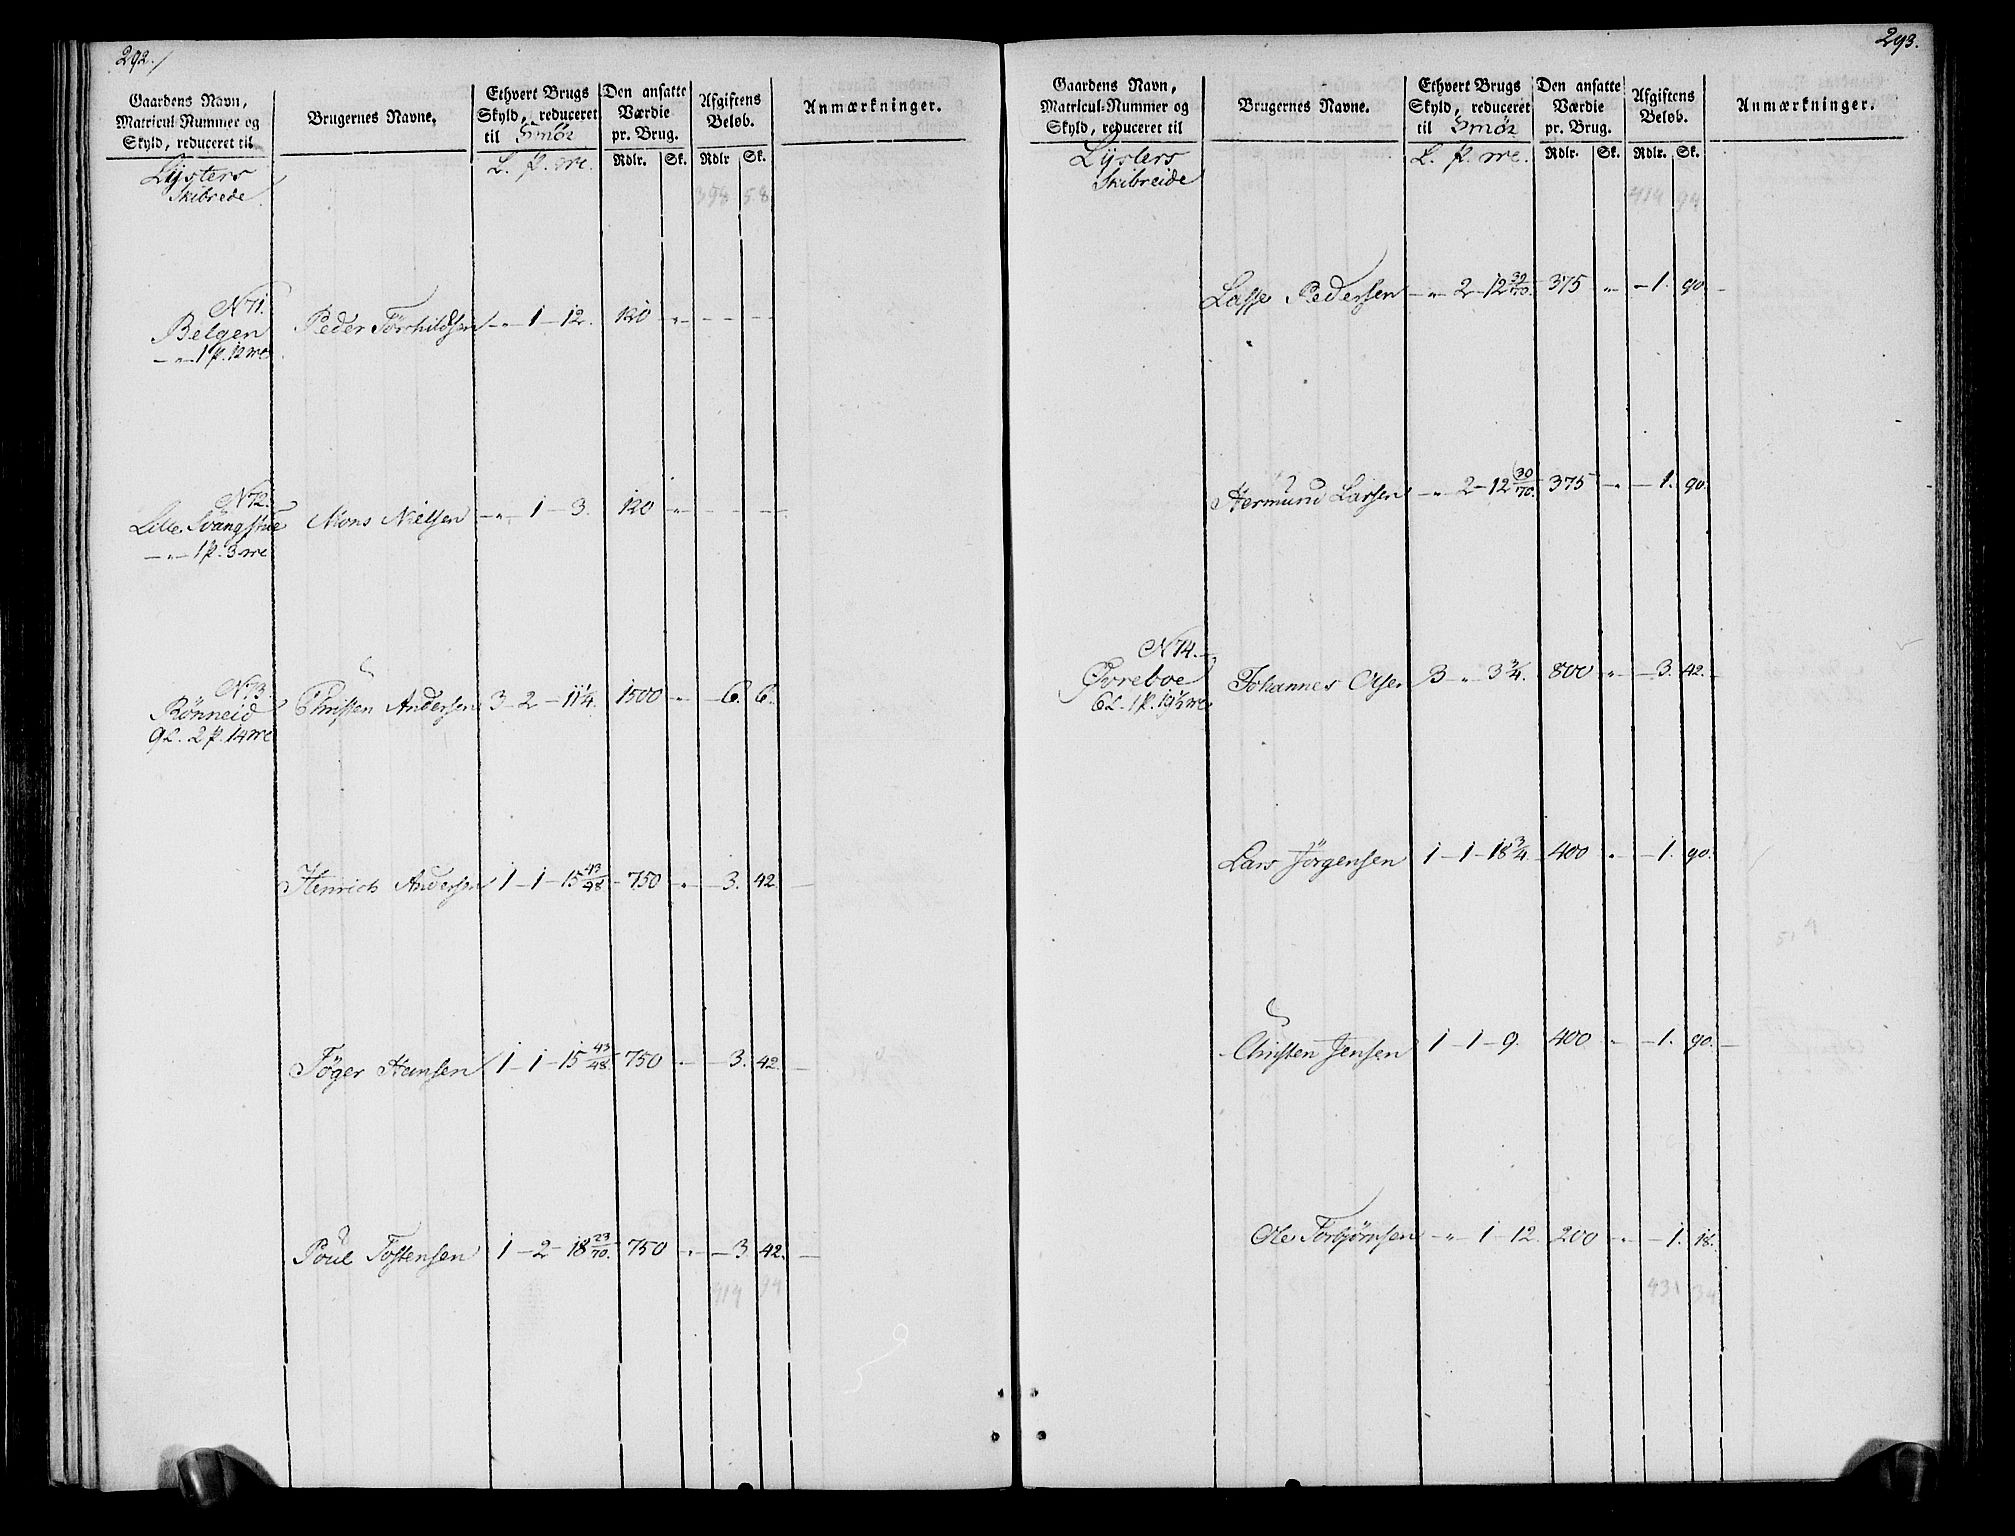 292./
Gaardens Navn, Matricul-Nummer og Skyld, reduceret til
Brugernes Navne.
Ethvert Brugs Skyld, reduceret til Smör
Den ansatte Værdie pr. Brug.
Afgiftens Beløb.
Anmærkninger.
L. p. mk.
Rdlr. Sk. Rdlr Sk.
Lÿsters
Skibrede
398 58
N 71.
Belgen Peder Törchildsen - „ - 1 - 12. 120 „ - - - -
- „ - 1 p. 12 mk
N 72.
Lille Svangstue Mons Nielsen - „ - 1 - 3. 120 „ - - - -
- „ - 1 p. 3 mk
N 73.
Rönneid Christen Andersen 3 - 2 - 11 1/4. 1500 „ - 6. 6.
9 L. 2 p. 14 mk
Henrich Andersen 1 - 1 - 15 43/48 - 750 „ - 3. 42. -
Töger Hansen 1 - 1 - 15 43/48 - 750 „ - 3. 42. -
Poul Tostensen 1 - 2 - 18 23/70. - 750 „ - 3. 42. -
414 94
293.
Gaardens Navn, Matricul-Nummer og Skyld, reduceret til
Brugernes Navne.
Ethvert Brugs Skyld, reduceret til Smör
Den ansatte Værdie pr. Brug.
Afgiftens Beløb.
Anmærkninger.
L. p. mk.
Rdlr. Sk. Rdlr. Sk.
Lÿsters
Skibreide
414 94
Lasse Pedersen - „ - 2 - 12 30/70. 375 „ - 1. 90. -
Hermund Larsen - „ - 2 - 12 30/70. 375 „ - 1. 90.
N 74.
Øvreboe Johannes Olsen 3 „ 3 3/4. 800 „ - 3. 42. -
6 L. 1 p. 19 1/2 mk
Lars Jörgensen 1 - 1 - 18 3/4. 400 „ - 1. 90.
Christen Jensen 1 1 - 9. 400 „ - 1. 90. -
Ole Torbjørnsen - „ 1 - 12. 200 „ - 1. 18.
431 34